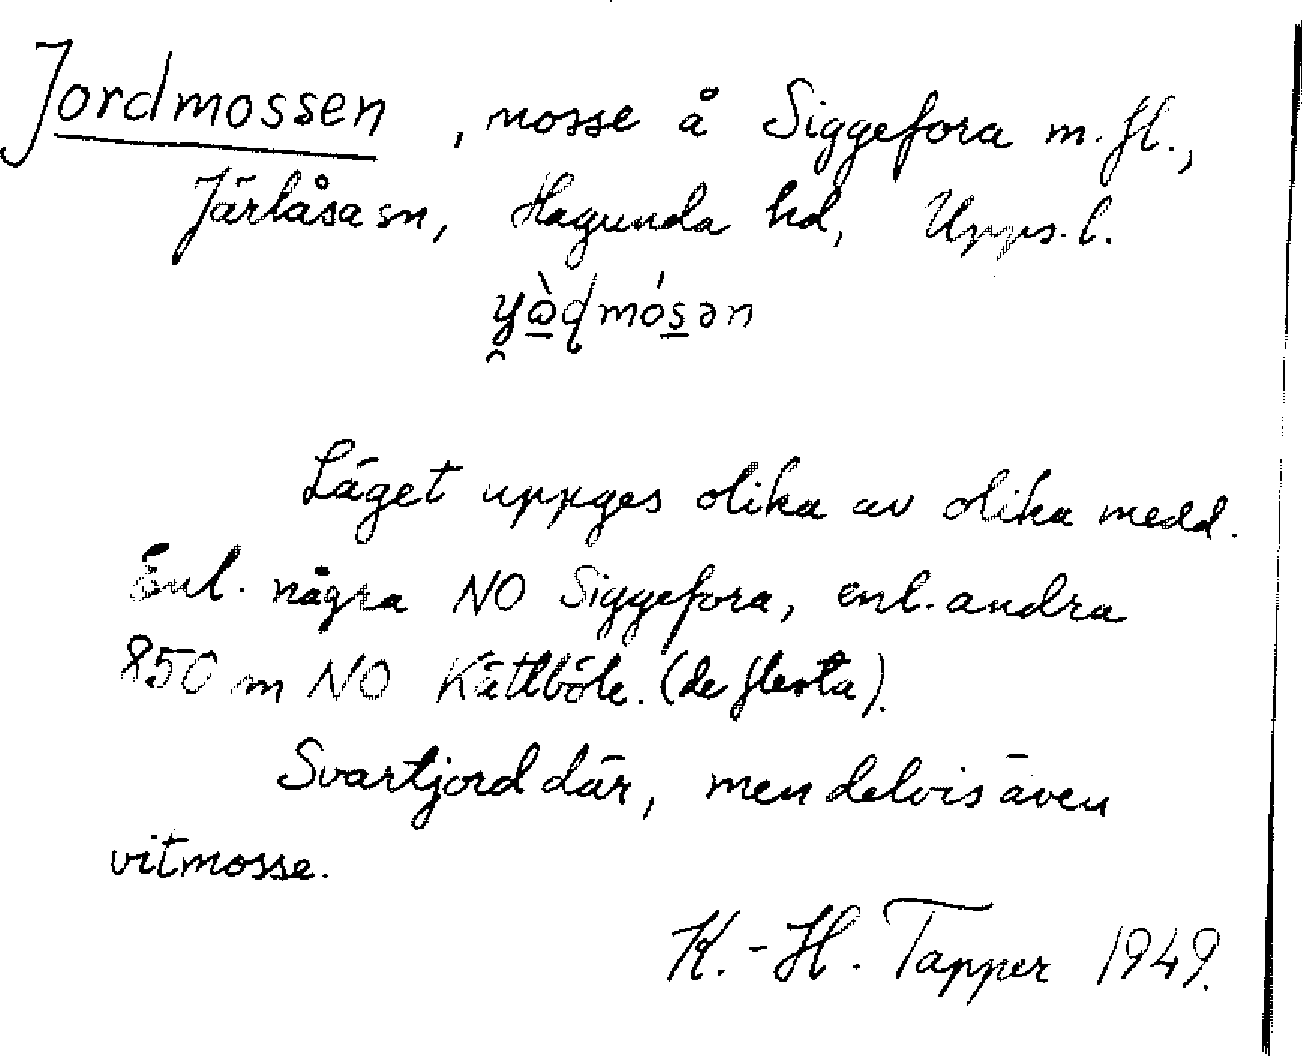 Jordmossen, mosse å Siggefora m. fl.,
Järlåsa sn, Hagunda hd, Upps. l.
Läget uppges olika av olika medd.
Enl. några NO Siggefora, enl. andra
850 m NO Kättböle. (de flesta).
Svartjord där, men delvis även
vitmosse.
K.-H. Tapper 1949.